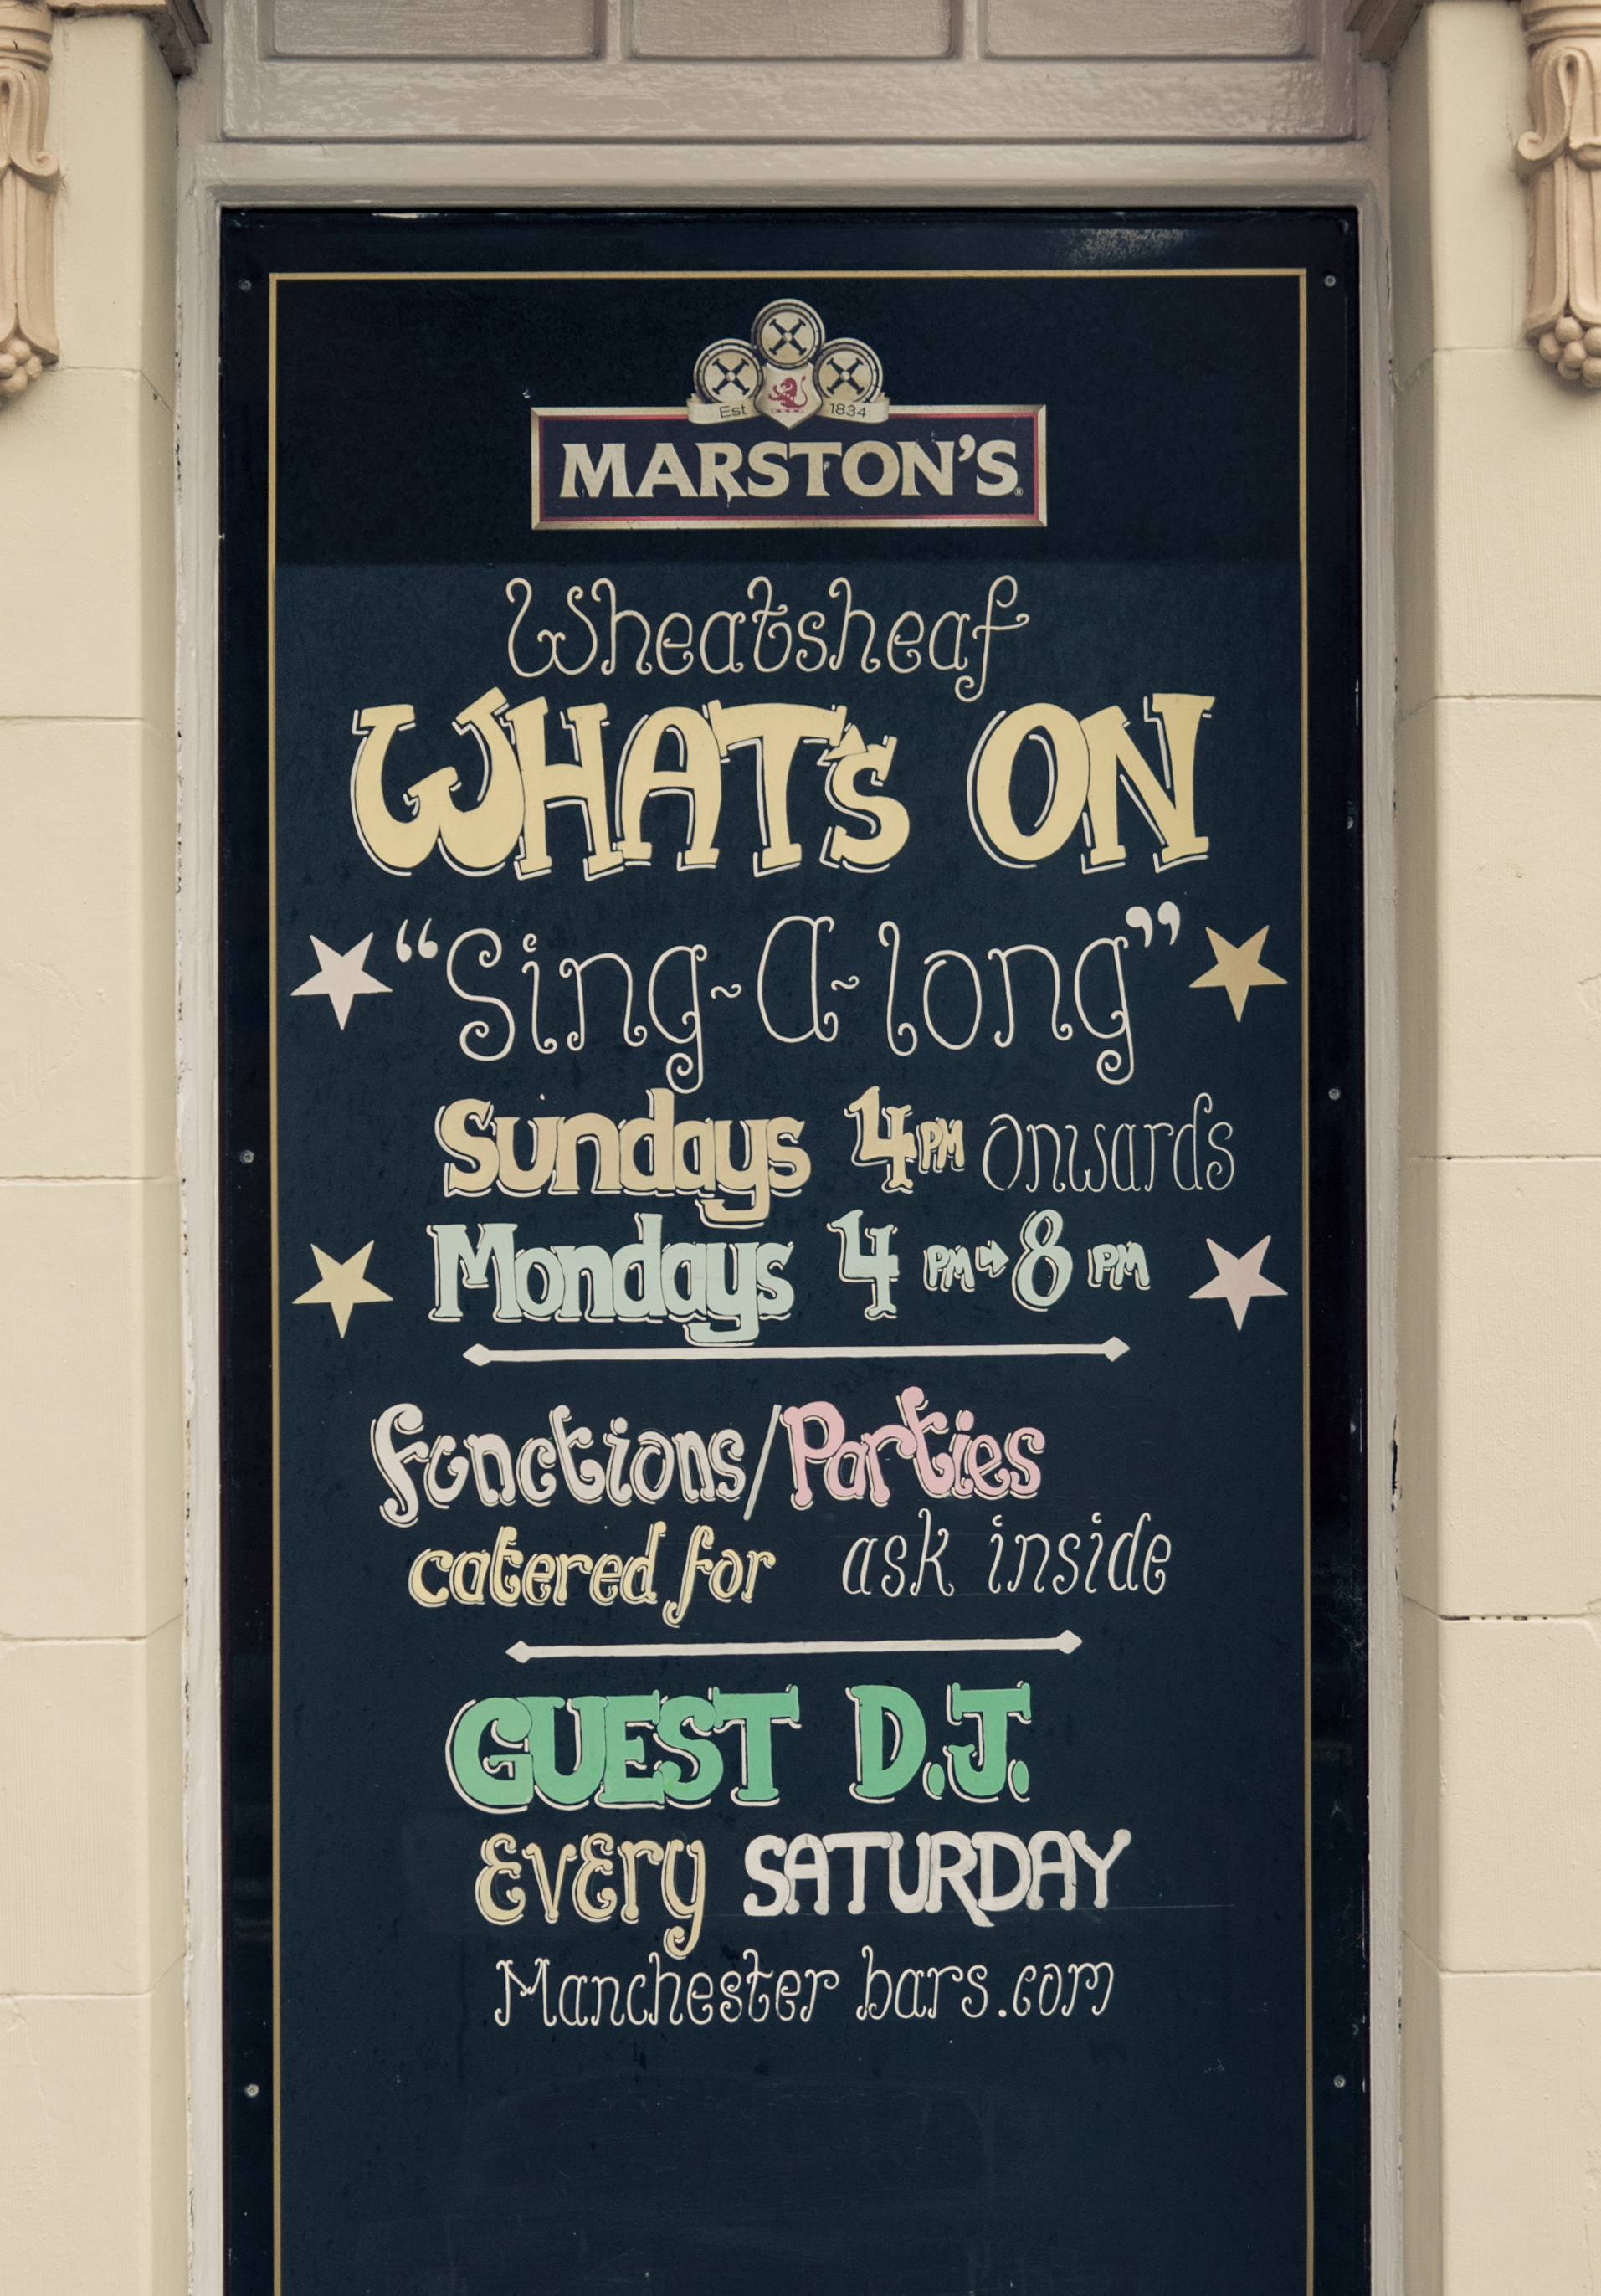 Est 1834
MARSTON'S®
Wheatsheaf
WHAT's ON
“Sing-A-long”
Sundays 4PM onwards
Mondays 4 PM→8 PM
functions/Parties
catered for ask inside
GUEST D.J.
Every SATURDAY
Manchester bars.com